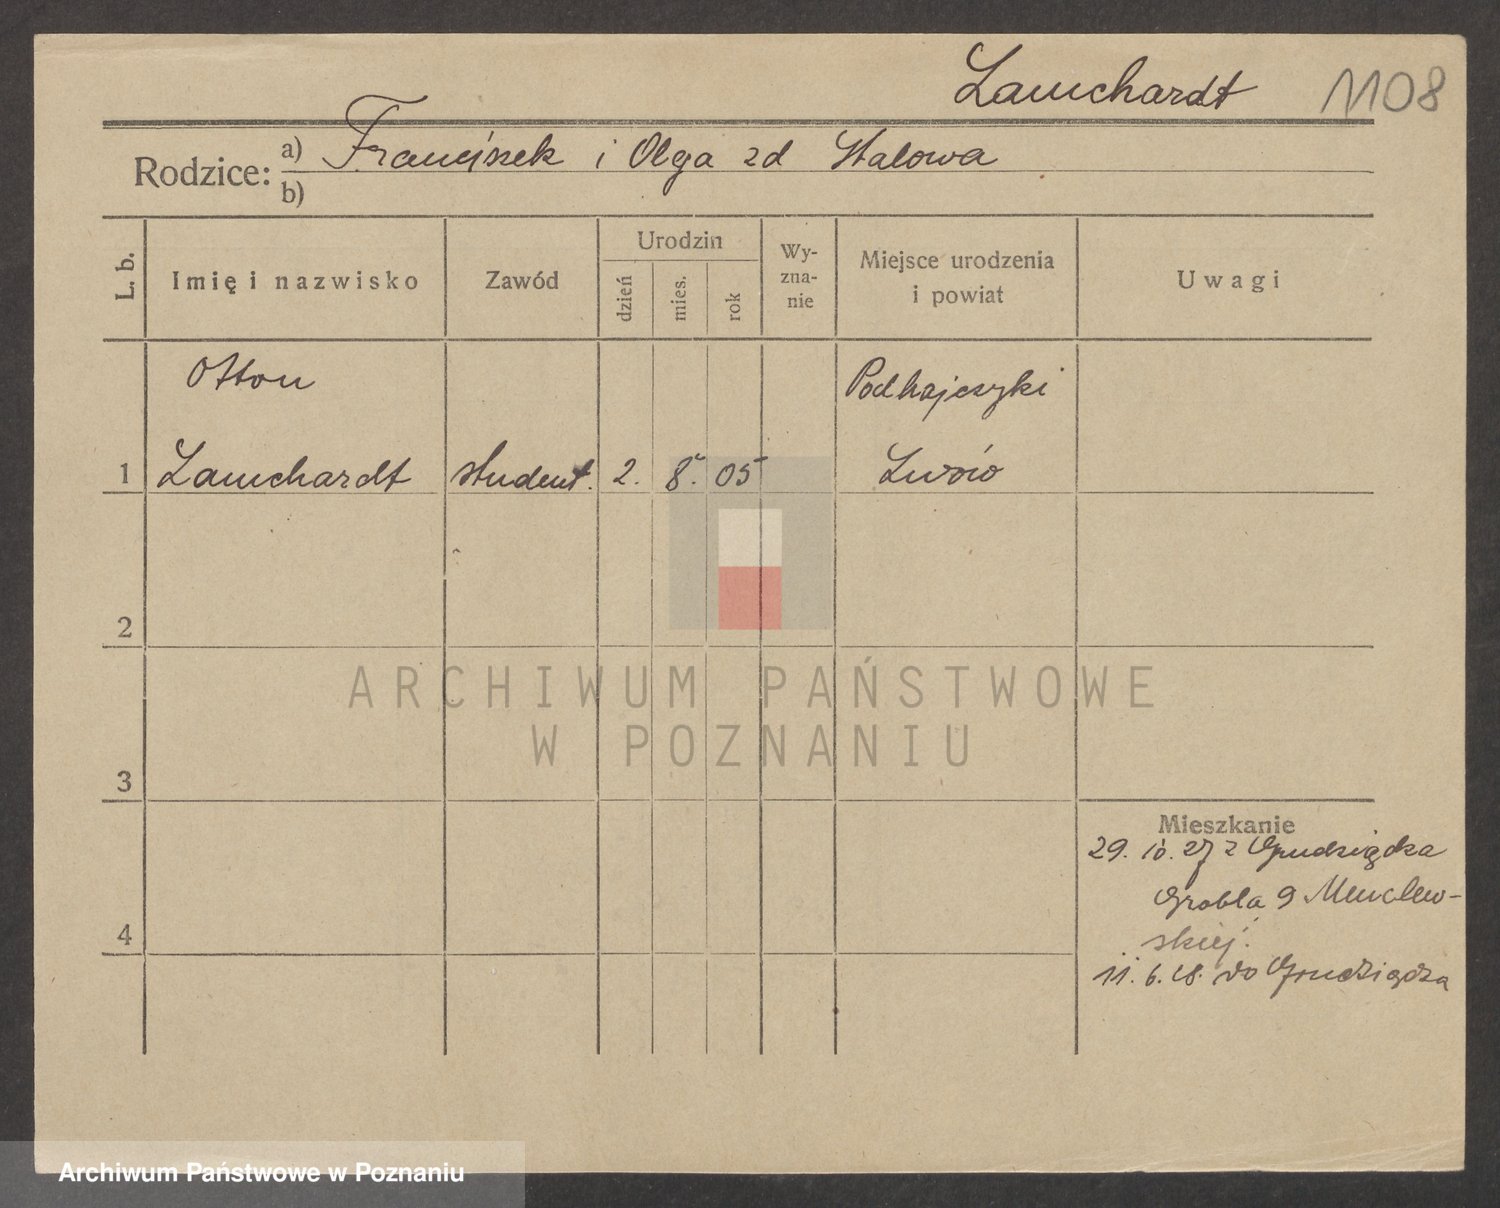 Lamchardt 1108
Rodzice: a) Franciszek i Olga zd Stalowa
b)
L. b.
Imię i nazwisko
Zawód
Urodzin
dzień
mies.
rok
Wy-
zna-
nie
Miejsce urodzenia
i powiat
Uwagi
Otton
Podhajczyki
1 Lamchardt student. 2. 8. 05 Lwów
2
ARCHIWUM PAŃSTWOWE
W POZNANIU
3
Mieszkanie
29. 10. 27 z Grudziądza
Grobla 9
skiej.
4
11. 6. 28. do Grudziądza
Archiwum Państwowe w Poznaniu